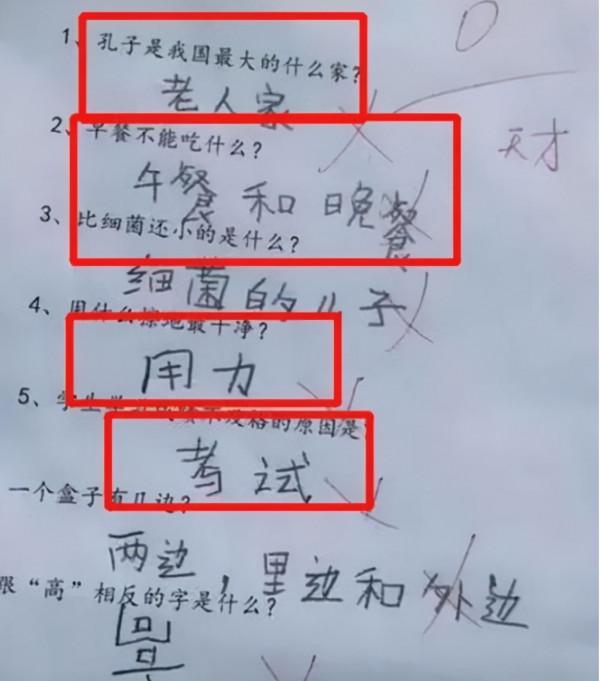 1、孔子是我国最大的什么家?
老人家
天才
2、早餐不能吃什么?
午餐和晚餐
3、比细菌还小的是什么?
细菌的儿子
4、用什么擦地最干净?
用力
5、学生
不及格的原因是?
考试
一个盒子有几边?
两边，里边和外边
跟“高”相反的字是什么?